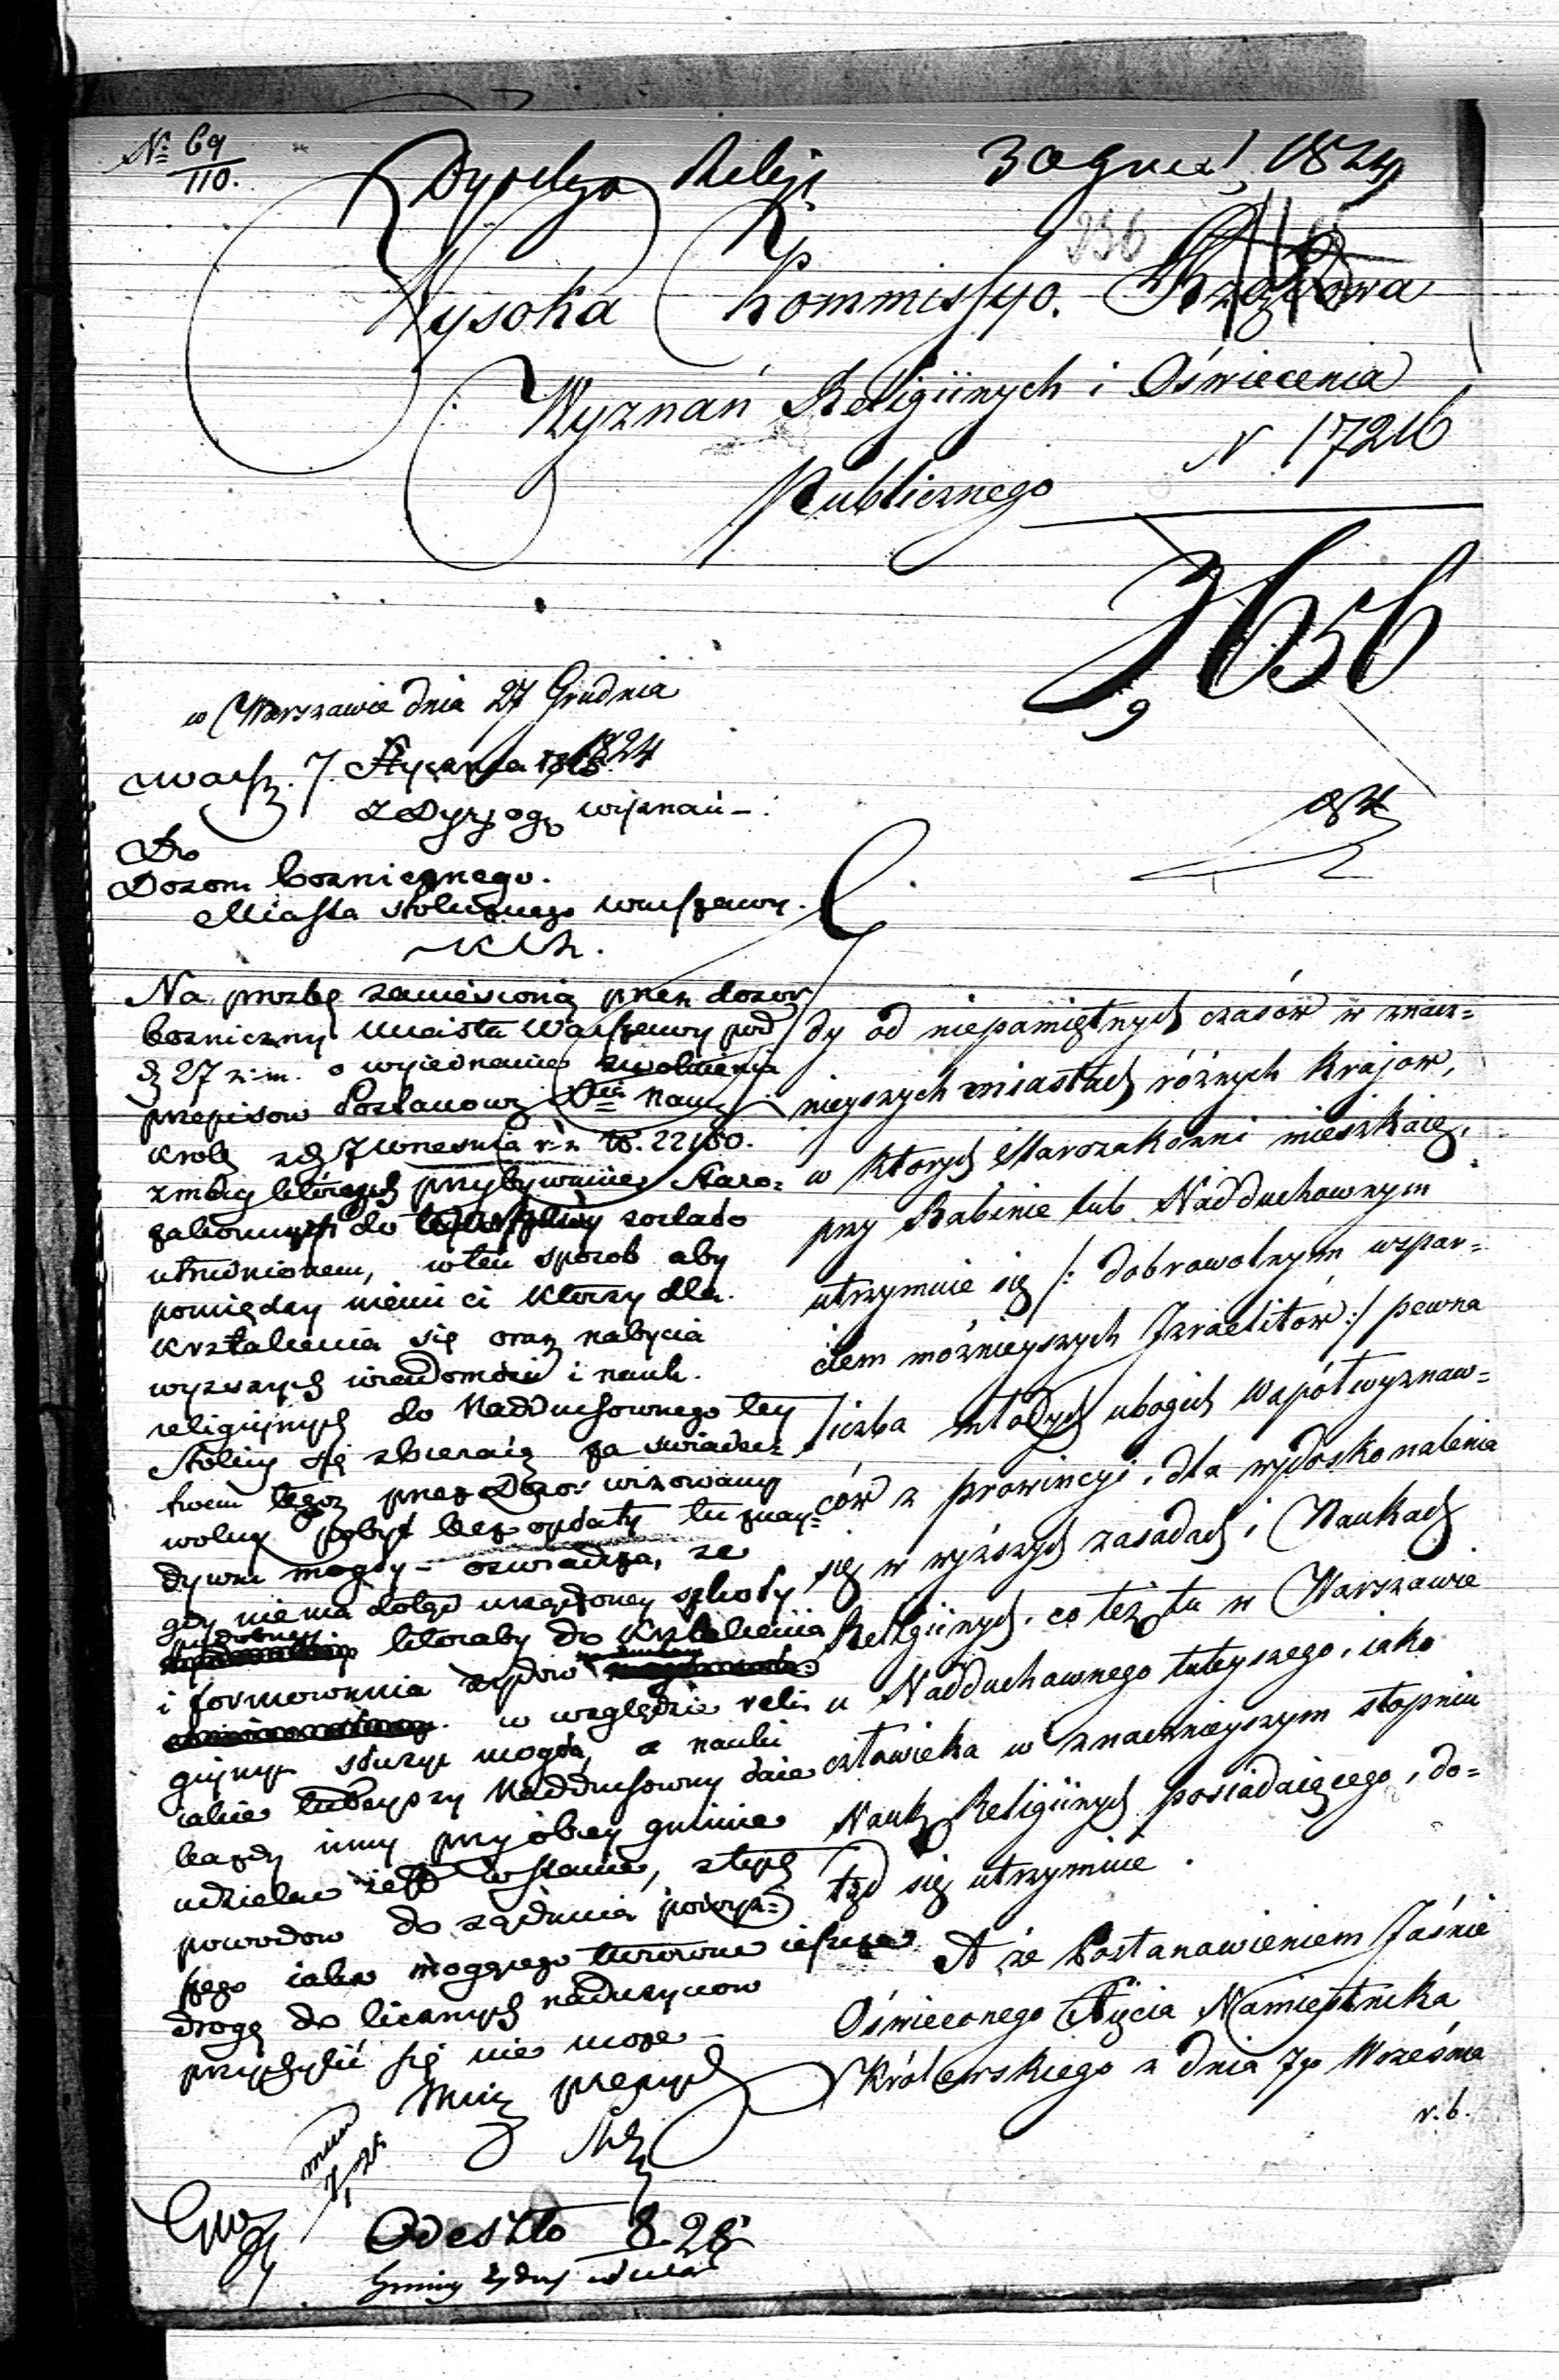 N: 69/110.
Religi 30 1824
236
Wysoka Kommissyo. Rządowa
Wyznań Religiinych i Oświecenia
N 17216
Publicznego
3656
9
w Warszawie dnia 27 Grudnia
1824
Warsz. 7. Stycznia
wyznań -
Do
Dozoru bozniczego.
Miasta stołecznego Warszawy.
Na prozbę zaniesioną przez dozor
bozniczny miasta Warszawy pod
d. 27 z: m. o wyiednanie zwolnienia
przepisow Postanow. Xcia Nam.
Krole z d. 7 Wrzesnia r. z. N. 22180.
z mocy ktorych przybywanie Staro-
zakonnych do zostało
utrudnionem, w ten sposob aby
pomiędzy niemi ci ktorzy dla
kształcenia się oraz nabycia
wyzszych wiadomości i nauk
religiynych do Nadduchownego tey
Stolicy się zbieraią za swiadec-
twem tegoż przez Dozor wizowany
wolny pobyt bez opłaty tu znay-
dywać mogły - oswiadcza, ze
gdy niema dotąd urządzoney szkoły
podobney ktoraby do kształcenia
i formowania
w względzie reli-
giynym służyć mogła, a nauki
iakie tuteyszy Nadduchowny daie
kazdy inny przy obcey gminie
udzielać iest w stanie, z tych
powodow do żądania powyż-
szego iako mogącego ieszcze
drogę do licznych naduzyciow
przychylić się nie może -
G
dy od niepamiętnych czasów w znacz-
nieyszych miastach róznych Kraiow,
w ktorych Starozakonni mieszkaią,
przy Rabinie lub Nadduchownym
utrzymuie się /: dobrowolnym wspar-
ciem możnieyszych Izraelitów :/ pewna
liczba młodych ubogich Współwyznaw-
ców z prowincyi, dla wydoskonalenia
się w wyższych zasadach i Naukach
Religiinych, co też tu w Warszawie
u Nadduchownego tuteyszego, iako
człowieka w znacznieyszym stopniu
Nauk Religiinych posiadaiącego, do-
tąd się utrzymuie.
A że Postanowieniem Jaśnie
Oświeconego Xięcia Namiestnika
Królewskiego z dnia 7go Września
r. b.
Odeszło 8. 25